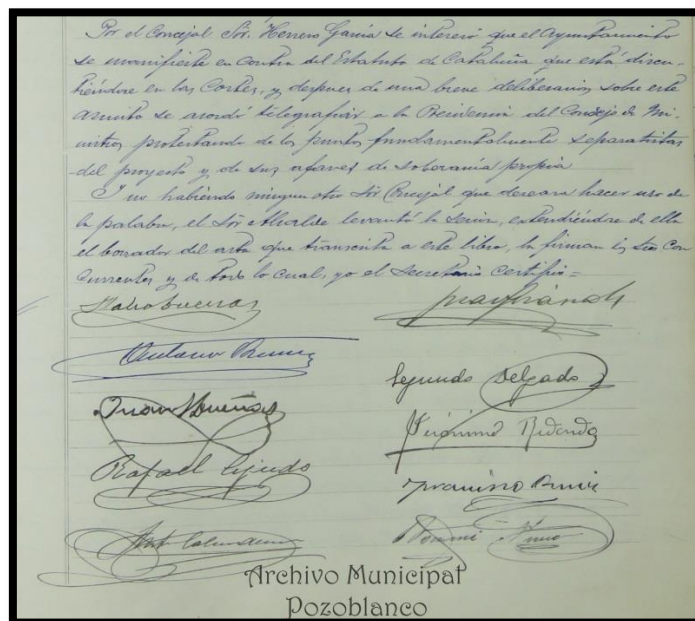 Por el Concejal Sr. Herrero García se interesó que el Ayuntamiento
se manifieste en contra del Estatuto de Cataluña que está discu-
tiéndose en las Cortes, y despues de una breve deliberacion sobre este
asunto se acordó telegrafiar a la Presidencia del Consejo de Mi-
nistros protestando de los puntos fundamentalmente separatistas
del proyecto y de sus afanes de soberanía propia
Y no habiendo ningun otro Sr. Concejal que deseara hacer uso de
la palabra, el Sr. Alcalde levantó la sesion, extendiéndose de ella
el borrador del acta que transcrita a este libro, la firman los Sres Con
currentes y de todo lo cual, yo el Secretario certifico=
Antonio
Segundo Delgado
Juan Dueñas
Jerónimo Redondo
Rafael
Francisco
Archivo Municipal
Pozoblanco